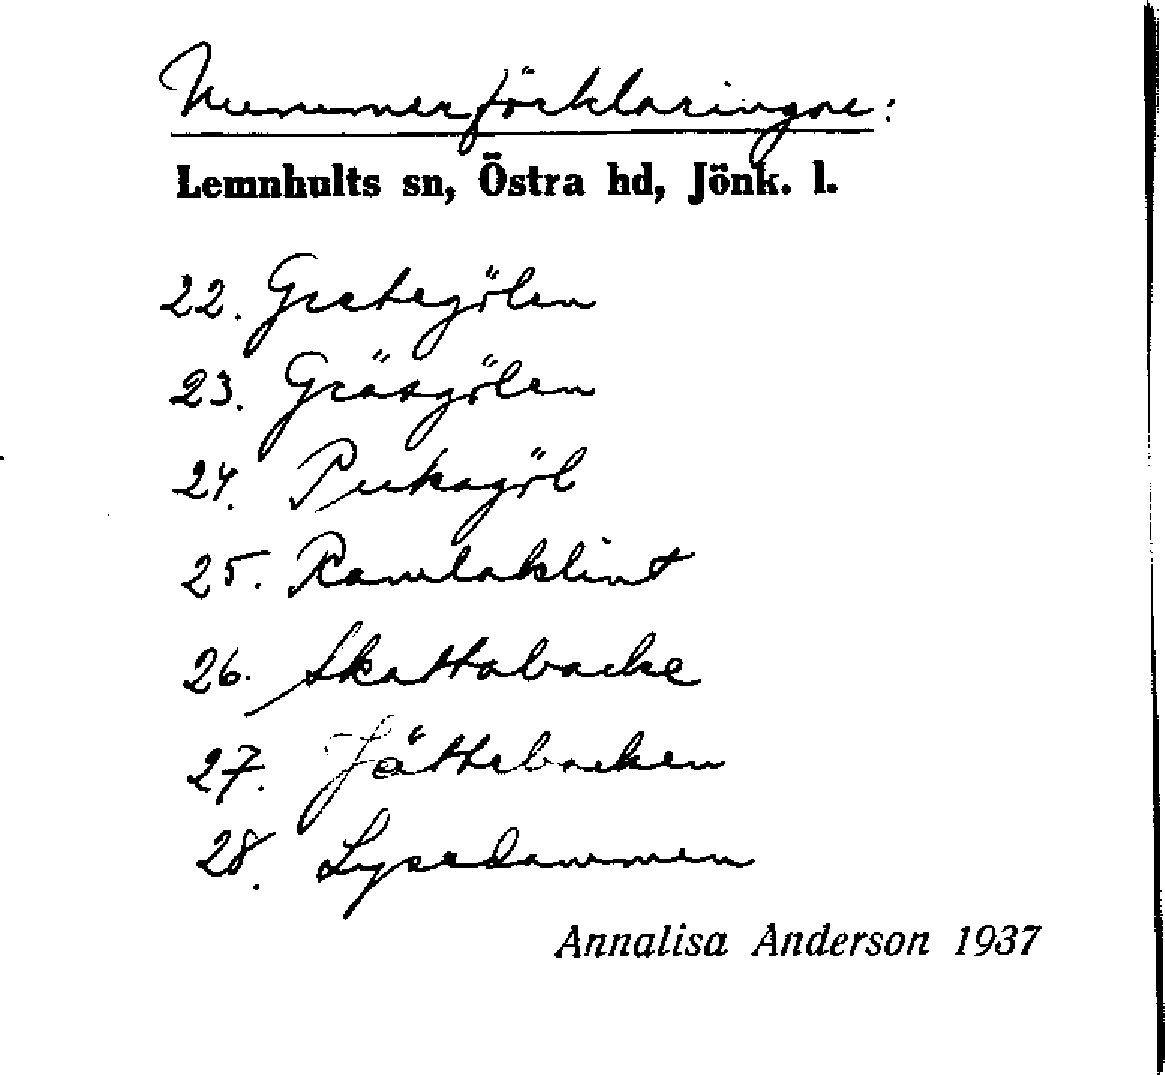 Nummerförklaringar:
Lemnhults sn, Östra hd, Jönk. l.
22. Gretegölen
23. Gräsgölen
24. Pukagöl
25. Ramlaklint
26. Skattabacke
27. Jättebacken
28. Lysedammen
Annalisa Anderson 1937